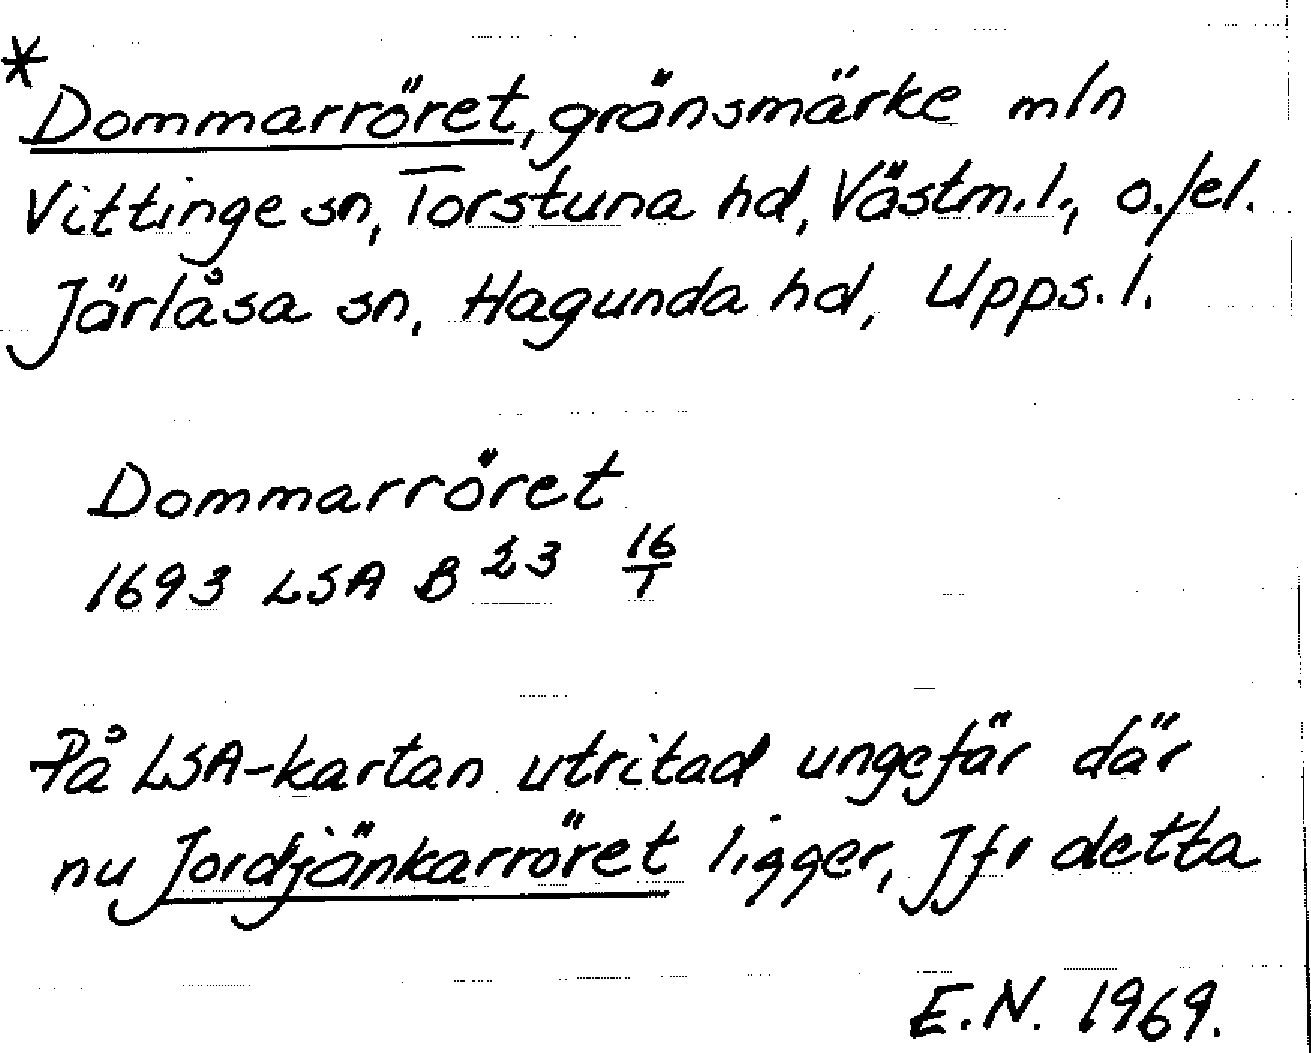 * Dommarröret, gränsmärke mln
Vittinge sn, Torstuna hd, Västm.l., o./el.
Järlåsa sn, Hagunda hd, Upps.l.
Dommarröret
1693 LSA B 23 16/1
På LSA-kartan utritad ungefär där
nu Jordjänkarröret ligger, Jfr detta
E.N. 1969.